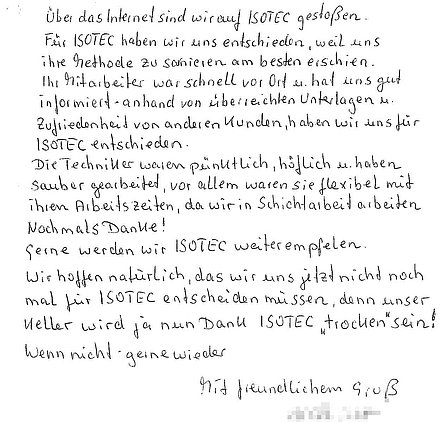 Über das Internet sind wir auf ISOTEC gestoßen.
Für ISOTEC haben wir uns entschieden, weil uns
ihre Methode zu sanieren am besten erschien.
Ihr Mitarbeiter war schnell vor Ort u. hat uns gut
informiert - anhand von überreichten Unterlagen u.
Zufriedenheit von anderen Kunden, haben wir uns für
ISOTEC entschieden.
Die Techniker waren pünktlich, höflich u. haben
sauber gearbeitet, vor allem waren sie flexibel mit
ihren Arbeitszeiten, da wir in Schichtarbeit arbeiten
Nochmals Danke!
Gerne werden wir ISOTEC weiterempfelen.
Wir hoffen natürlich, das wir uns jetzt nicht noch
mal für ISOTEC entscheiden müssen, denn unser
Keller wird ja nun Dank ISOTEC „trocken“ sein!
Wenn nicht - gerne wieder
Mit freundlichem Gruß